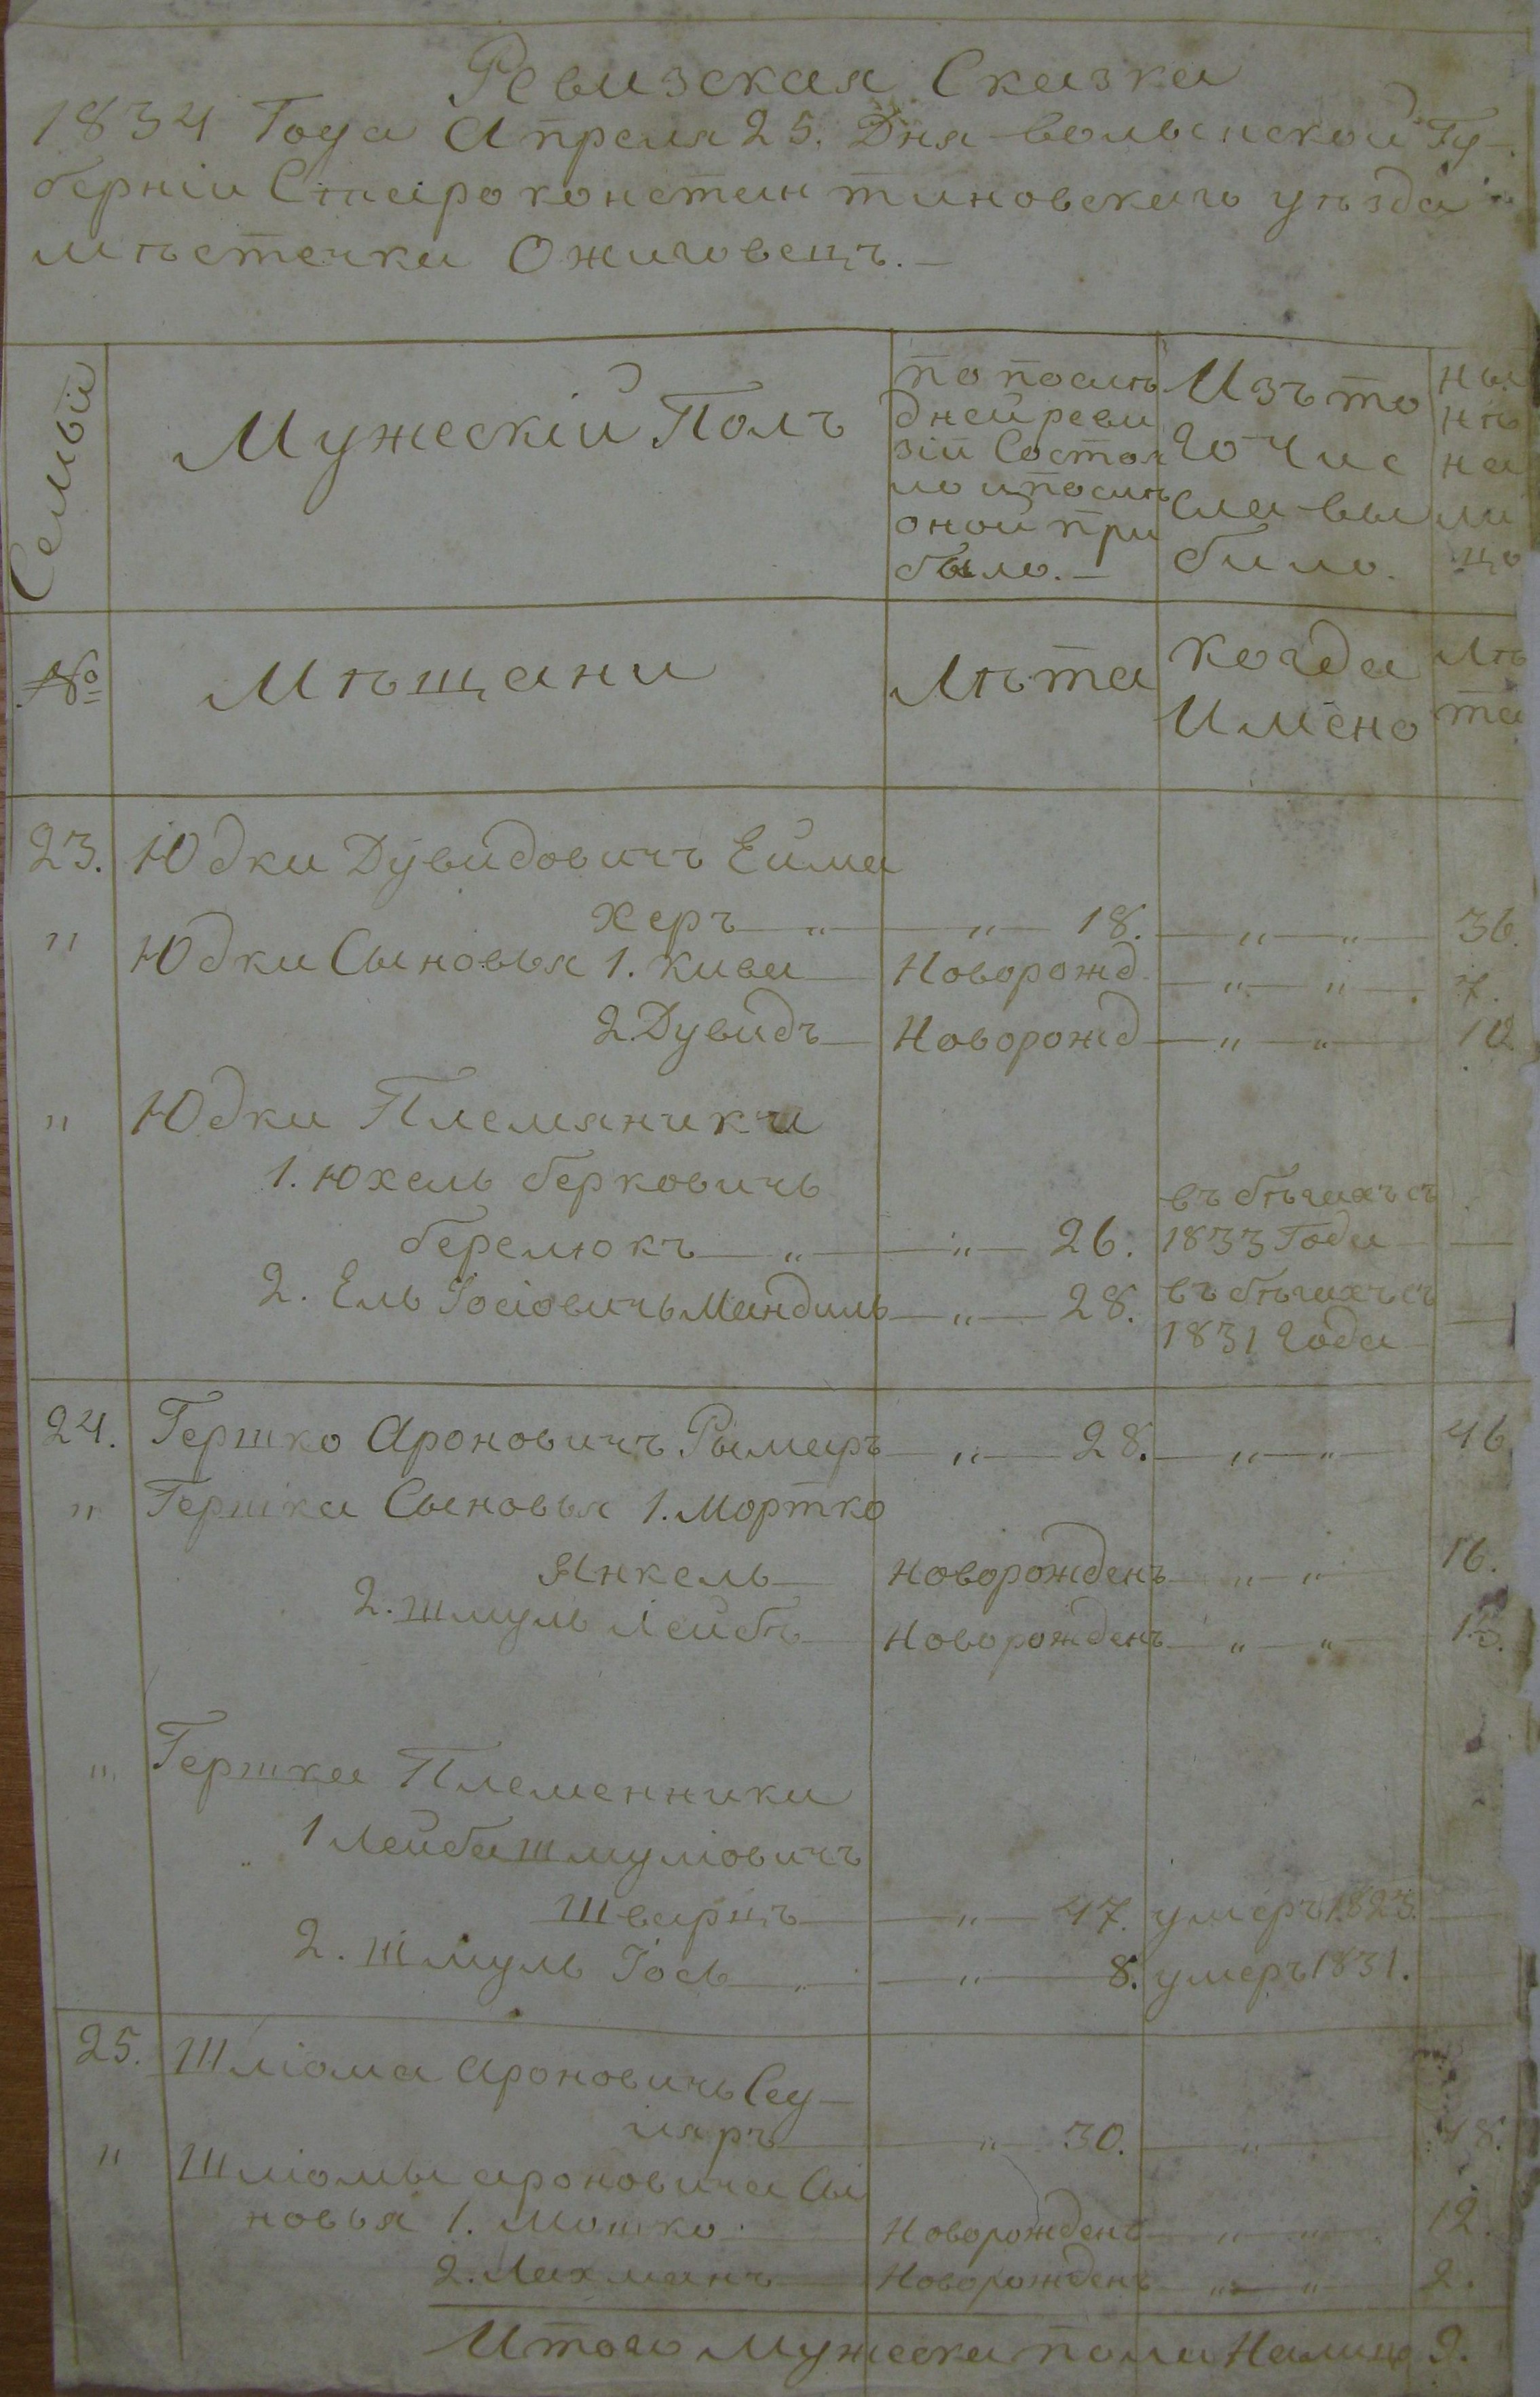 Ревизская Сказка
1834 Года Апреля 25. Дня волынской Гу-
берніи Староконстантиновскаго уѣзда
мѣстечка Ожиговецъ.—
Семьи
Мужескій Полъ
по послѣ
дней реви
зіи Состоя
ло и послѣ
оной при
было.—
Изъ то
го чис
ла вы
било.
ны
нѣ
на
ли
цо
№
Мѣщани
Лѣта
когда
Имено
Лѣ
та
23. Юдка Дувидовичъ Ейма
херъ — „ — „ — 18. — „ — „ — 36.
„ Юдки Сыновья 1. Кива — Новорожд — „ — „ — 7.
2. Дувидъ — Новорожд — „ — „ —
„ Юдки Племяники
1. Юхель берковичь
берелюкъ — „ — „ — 26.
въ бѣгахъ съ
1833 Года —
2. Ель Іосіовичь Мандиль — „ — 28.
въ бѣгахъ съ
1831 года —
24. Гершко Ароновичъ Рымаръ — „ — 28. — „ — „ — 46.
„ Гершка Сыновья 1. Мортко
Янкель — Новорожденъ — „ — „ 16.
2. Шмуль Лейбъ — Новорожденъ — „ — „ — 13.
„ Гершка Племенники
1 Лейба Шмуліовичъ
Шварцъ — „ — 47. умеръ 1823. —
2. Шмуль Іось — „ — „ — 8. умеръ 1831. —
25. Шліома Ароновичь Сау-
ляръ — „ — 30. — „ — 48.
„ Шліомы ароновича Сы
новья 1. Мошко — Новорожденъ — „ — „ 12.
2. Лахманъ — Новорожденъ — „ — „ 2.
Итого Мужеска пола Налицо 9.